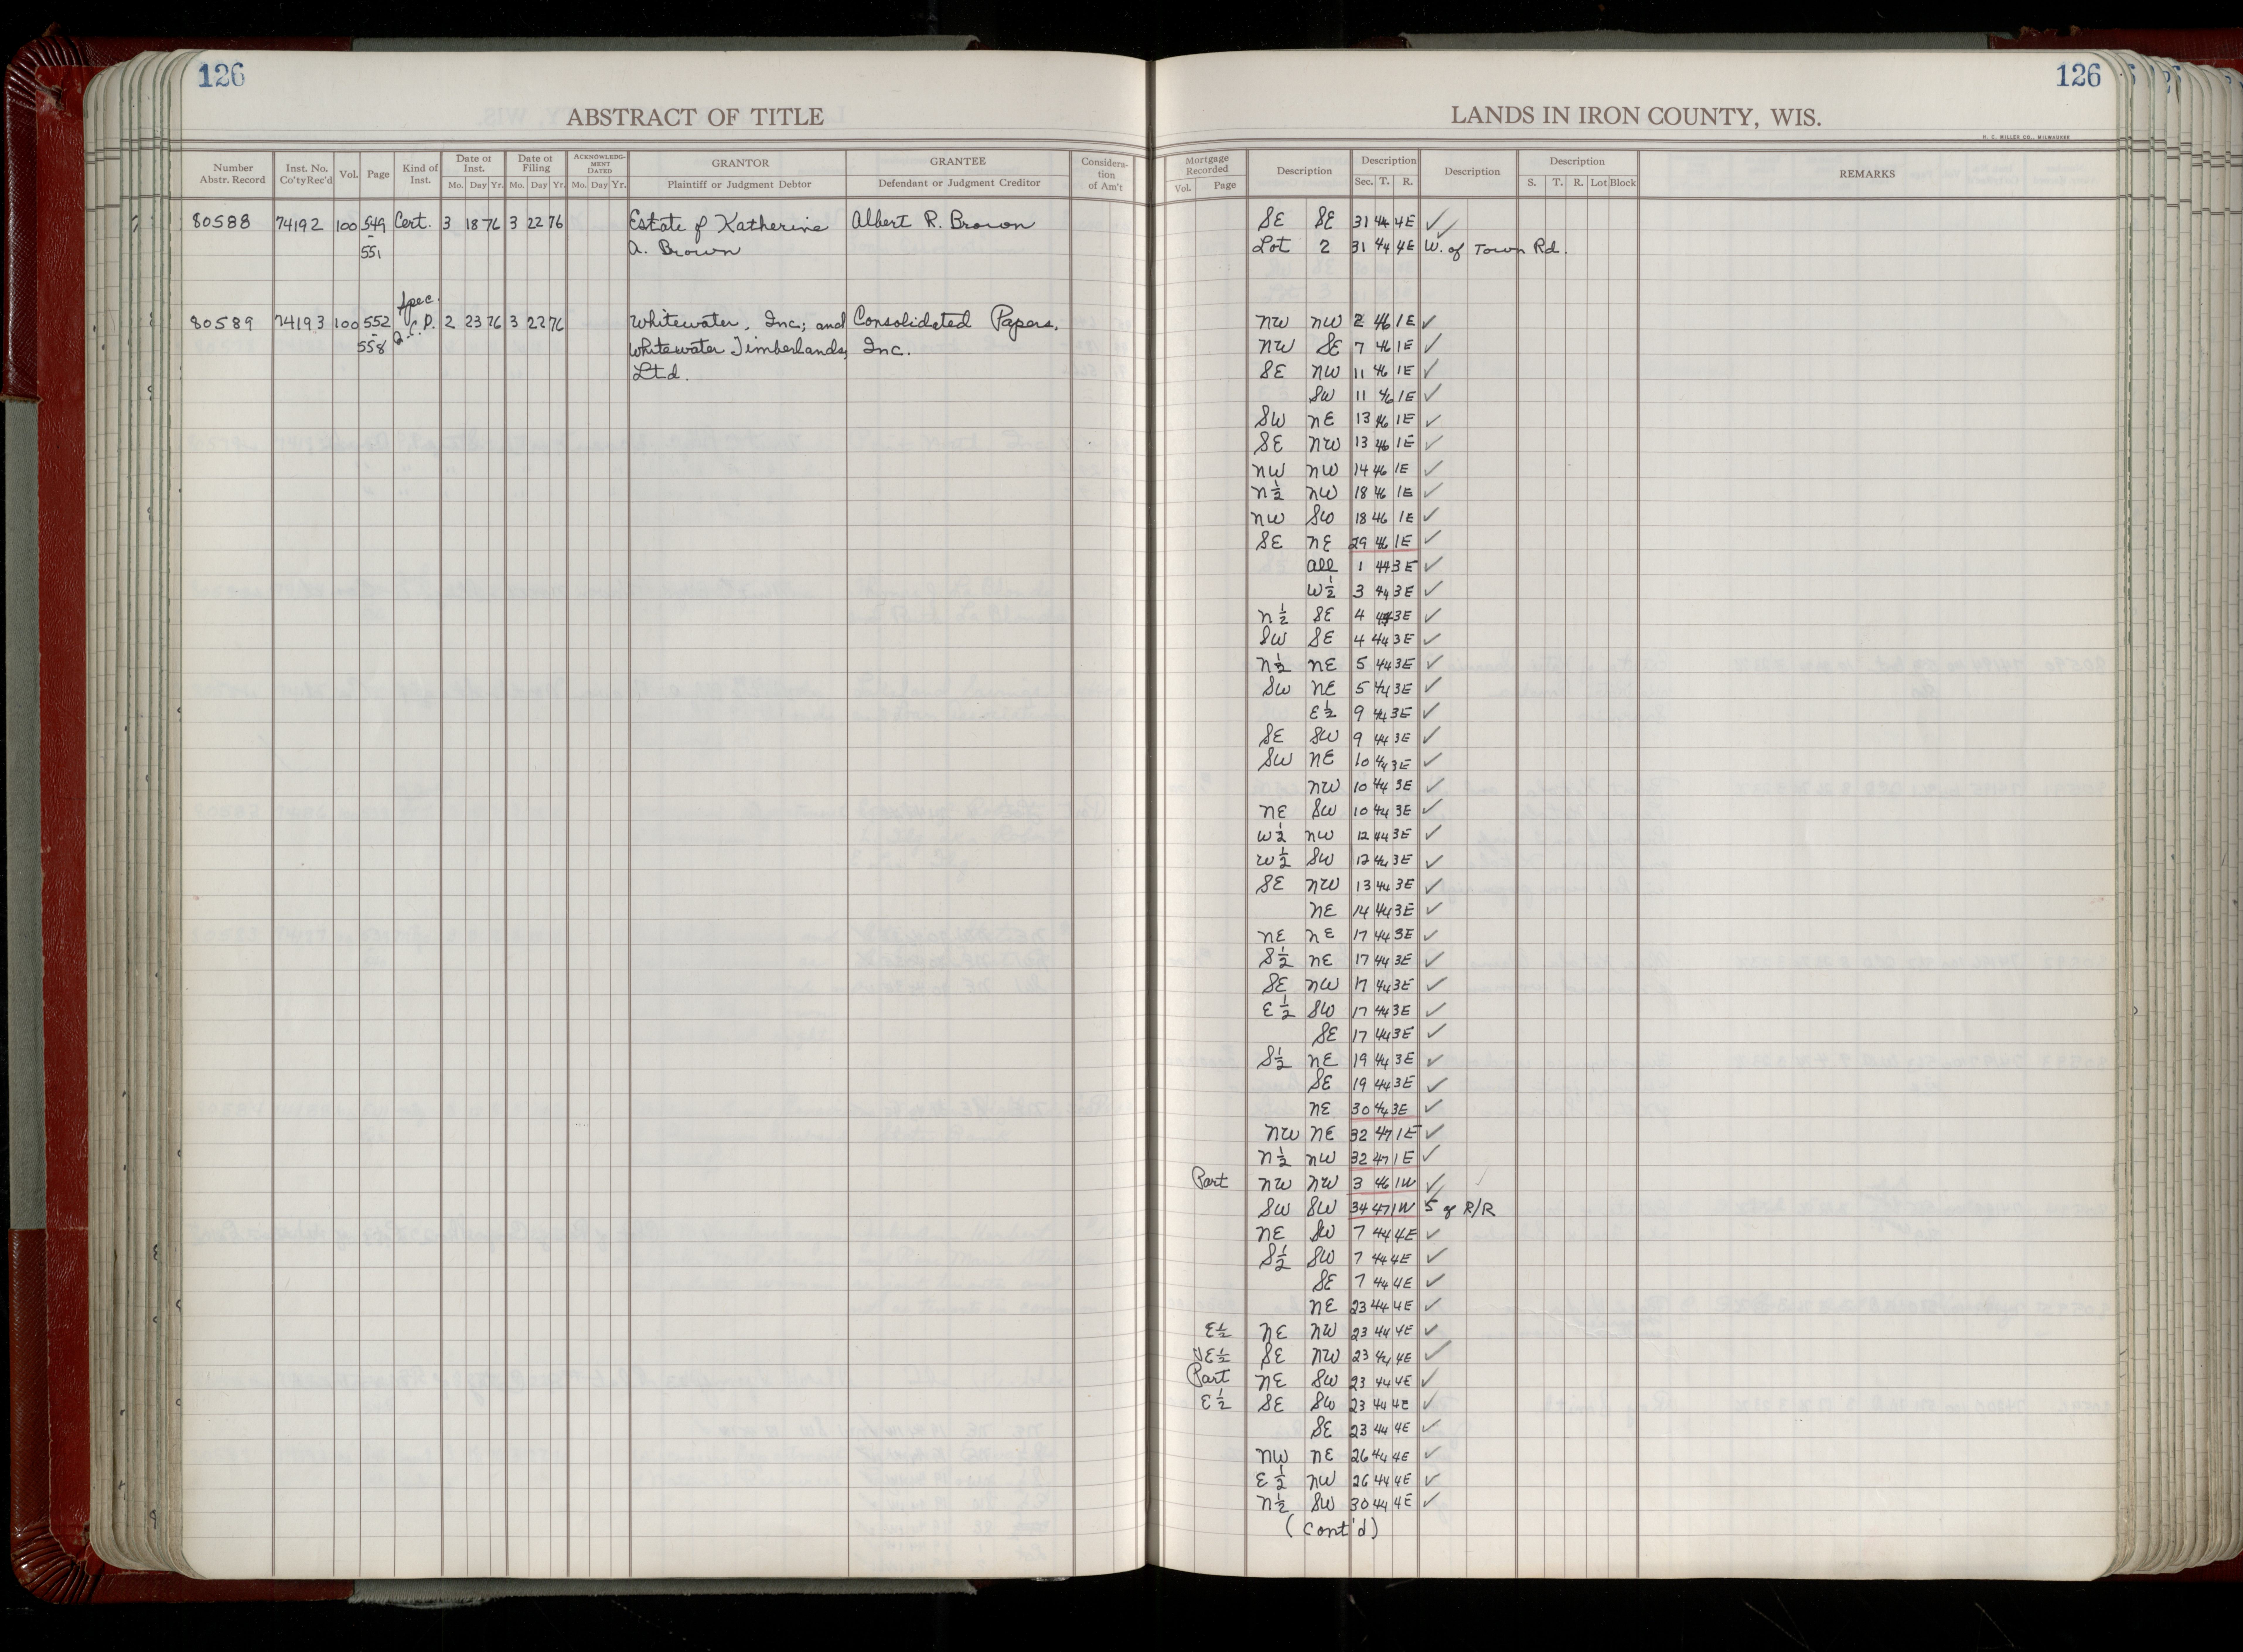 126
ABSTRACT OF TITLE
Number Abstr. Record Inst. No. Co'tyRec'd Vol. Page Kind of Inst. Date of Inst. Mo. Day Yr. Date of Filing Mo. Day Yr. ACKNOWLEDGMENT DATED Mo. Day Yr. GRANTOR Plaintiff or Judgment Debtor GRANTEE Defendant or Judgment Creditor Consideration of Am't
80588 74192 100 549 Cert. 3 18 76 3 22 76 Estate of Katherine Albert R. Brown
- 551 A. Brown
Spec.
80589 74193 100 552 Q.C.D. 2 23 76 3 22 76 Whitewater, Inc; and Consolidated Papers,
- 558 Whitewater Timberlands, Inc.
Ltd.
126
LANDS IN IRON COUNTY, WIS.
H. C. MILLER CO., MILWAUKEE
Mortgage Recorded Vol. Page Description Description Sec. T. R. Description Description S. T. R. Lot Block REMARKS
SE SE 31 44 4E ✓
Lot 2 31 44 4E W. of Town Rd.
NW NW 2 46 1E ✓
NW SE 7 46 1E ✓
SE NW 11 46 1E ✓
SW 11 46 1E ✓
SW NE 13 46 1E ✓
SE NW 13 46 1E ✓
NW NW 14 46 1E ✓
N½ NW 18 46 1E ✓
NW SW 18 46 1E ✓
SE NE 29 46 1E ✓
All 1 44 3E ✓
W½ 3 44 3E ✓
N½ SE 4 44 3E ✓
SW SE 4 44 3E ✓
N½ NE 5 44 3E ✓
SW NE 5 44 3E ✓
E½ 9 44 3E ✓
SE SW 9 44 3E ✓
SW NE 10 44 3E ✓
NW 10 44 3E ✓
NE SW 10 44 3E ✓
W½ NW 12 44 3E ✓
W½ SW 12 44 3E ✓
SE NW 13 44 3E ✓
NE 14 44 3E ✓
NE NE 17 44 3E ✓
S½ NE 17 44 3E ✓
SE NW 17 44 3E ✓
E½ SW 17 44 3E ✓
SE 17 44 3E ✓
S½ NE 19 44 3E ✓
SE 19 44 3E ✓
NE 30 44 3E ✓
NW NE 32 47 1E ✓
N½ NW 32 47 1E ✓
Part NW NW 3 46 1W ✓
SW SW 34 47 1W S of R/R
NE SW 7 44 4E ✓
S½ SW 7 44 4E ✓
SE 7 44 4E ✓
NE 23 44 4E ✓
E½ NE NW 23 44 4E ✓
E½ SE NW 23 44 4E ✓
Part NE SW 23 44 4E ✓
E½ SE SW 23 44 4E ✓
SE 23 44 4E ✓
NW NE 26 44 4E ✓
E½ NW 26 44 4E ✓
N½ SW 30 44 4E ✓
(Cont'd)